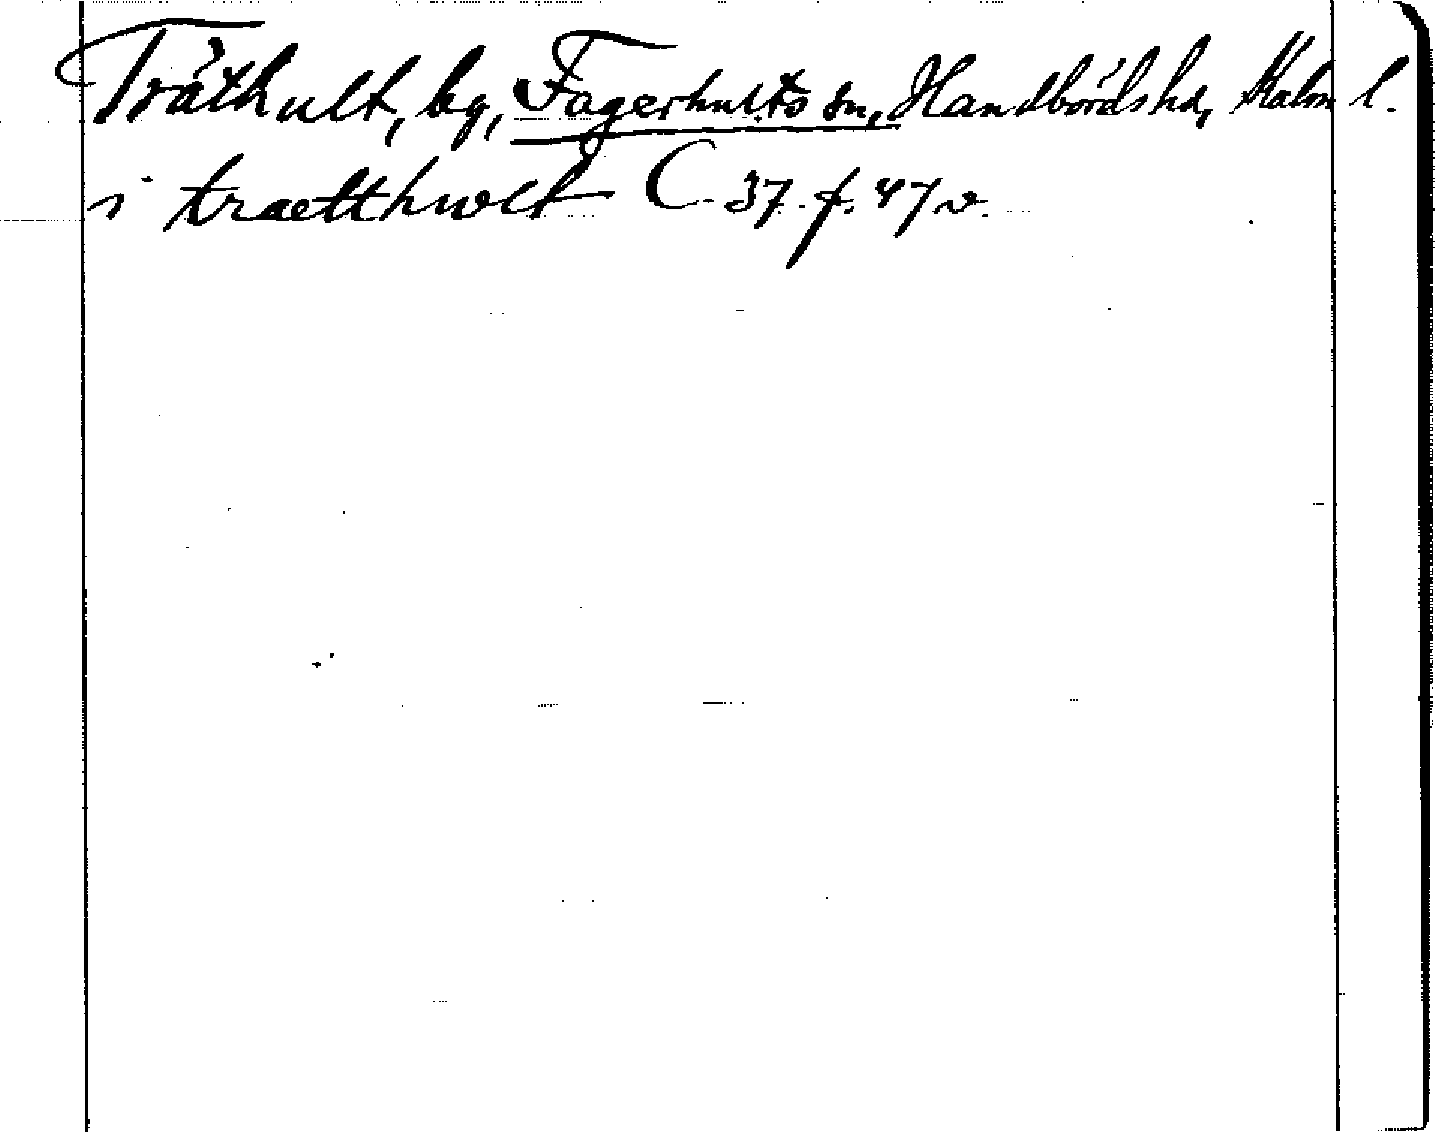 Träthult, by, Fagerhults sn, Handbörds hd, Kalm l.
i traetthwlt C 37 f. 47 v.